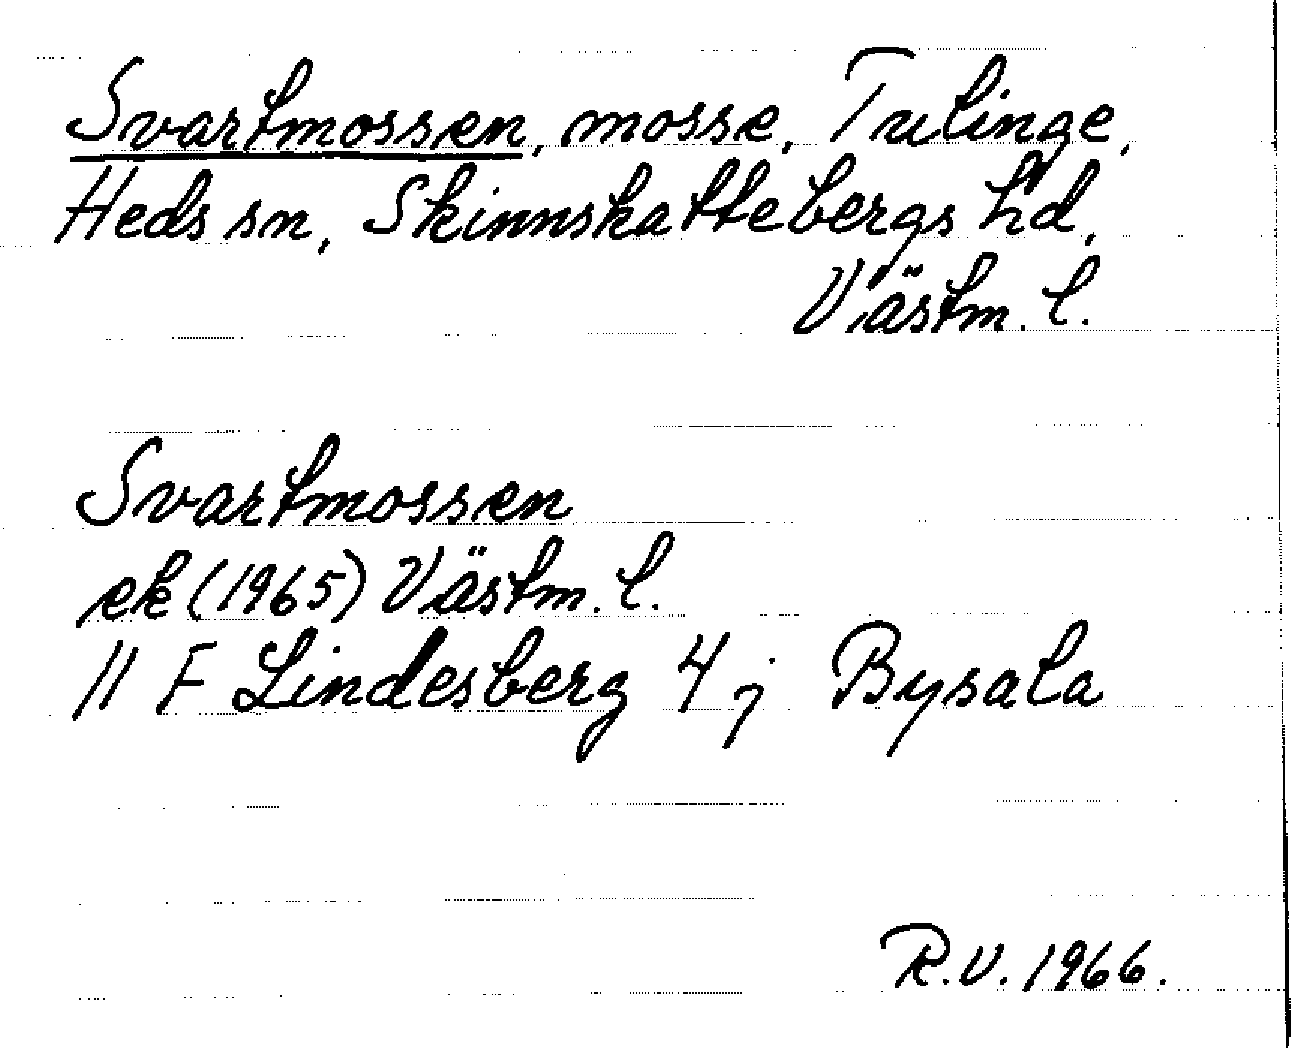 Svartmossen, mosse, Trulinge,
Heds sn, Skinnskattebergs hd,
Västm. l.
Svartmossen
ek (1965) Västm. l.
11 F Lindesberg 4 j Bysala
R.V. 1966.